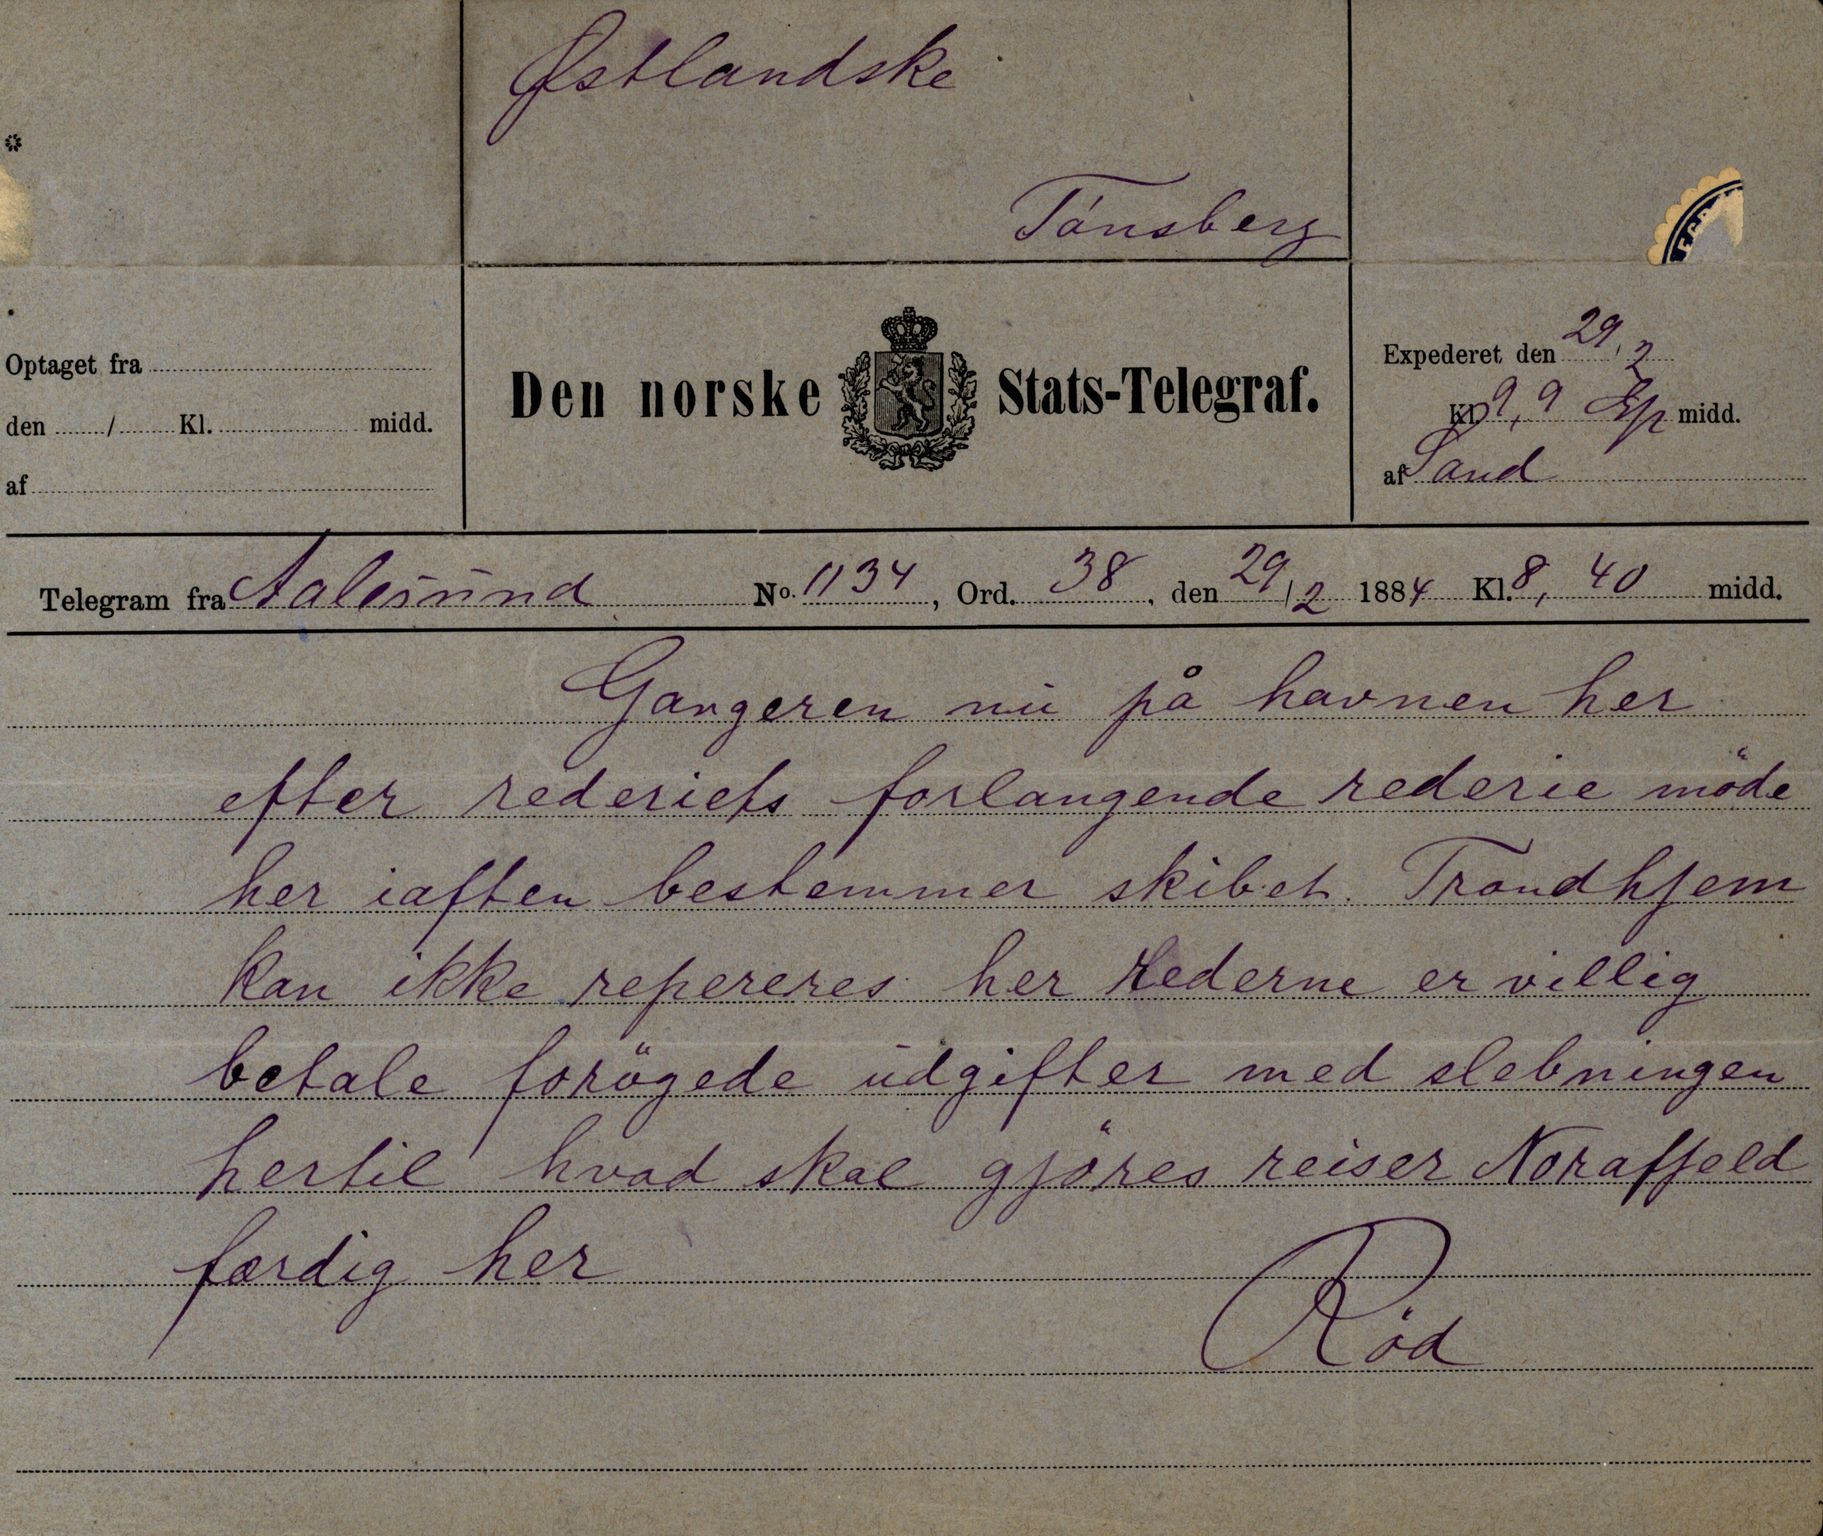 Østlandske
Tönsberg
Optaget fra
den / Kl. midd.
af
Den norske Stats-Telegraf.
Expederet den 29/2
Kl 9,9 Ep midd.
af Sand
Telegram fra Aalesund No. 1134, Ord. 38, den 29/2 1884 Kl. 8,40 midd.
Gangeren nu på havnen her
efter rederiets forlangende rederie möde
her iaften bestemmer skibet Trondhjem
kan ikke repereres her Rederne er villig
betale forögede udgifter med slebningen
hertil hvad skal gjöres reiser Norafjeld
færdig her
Röd